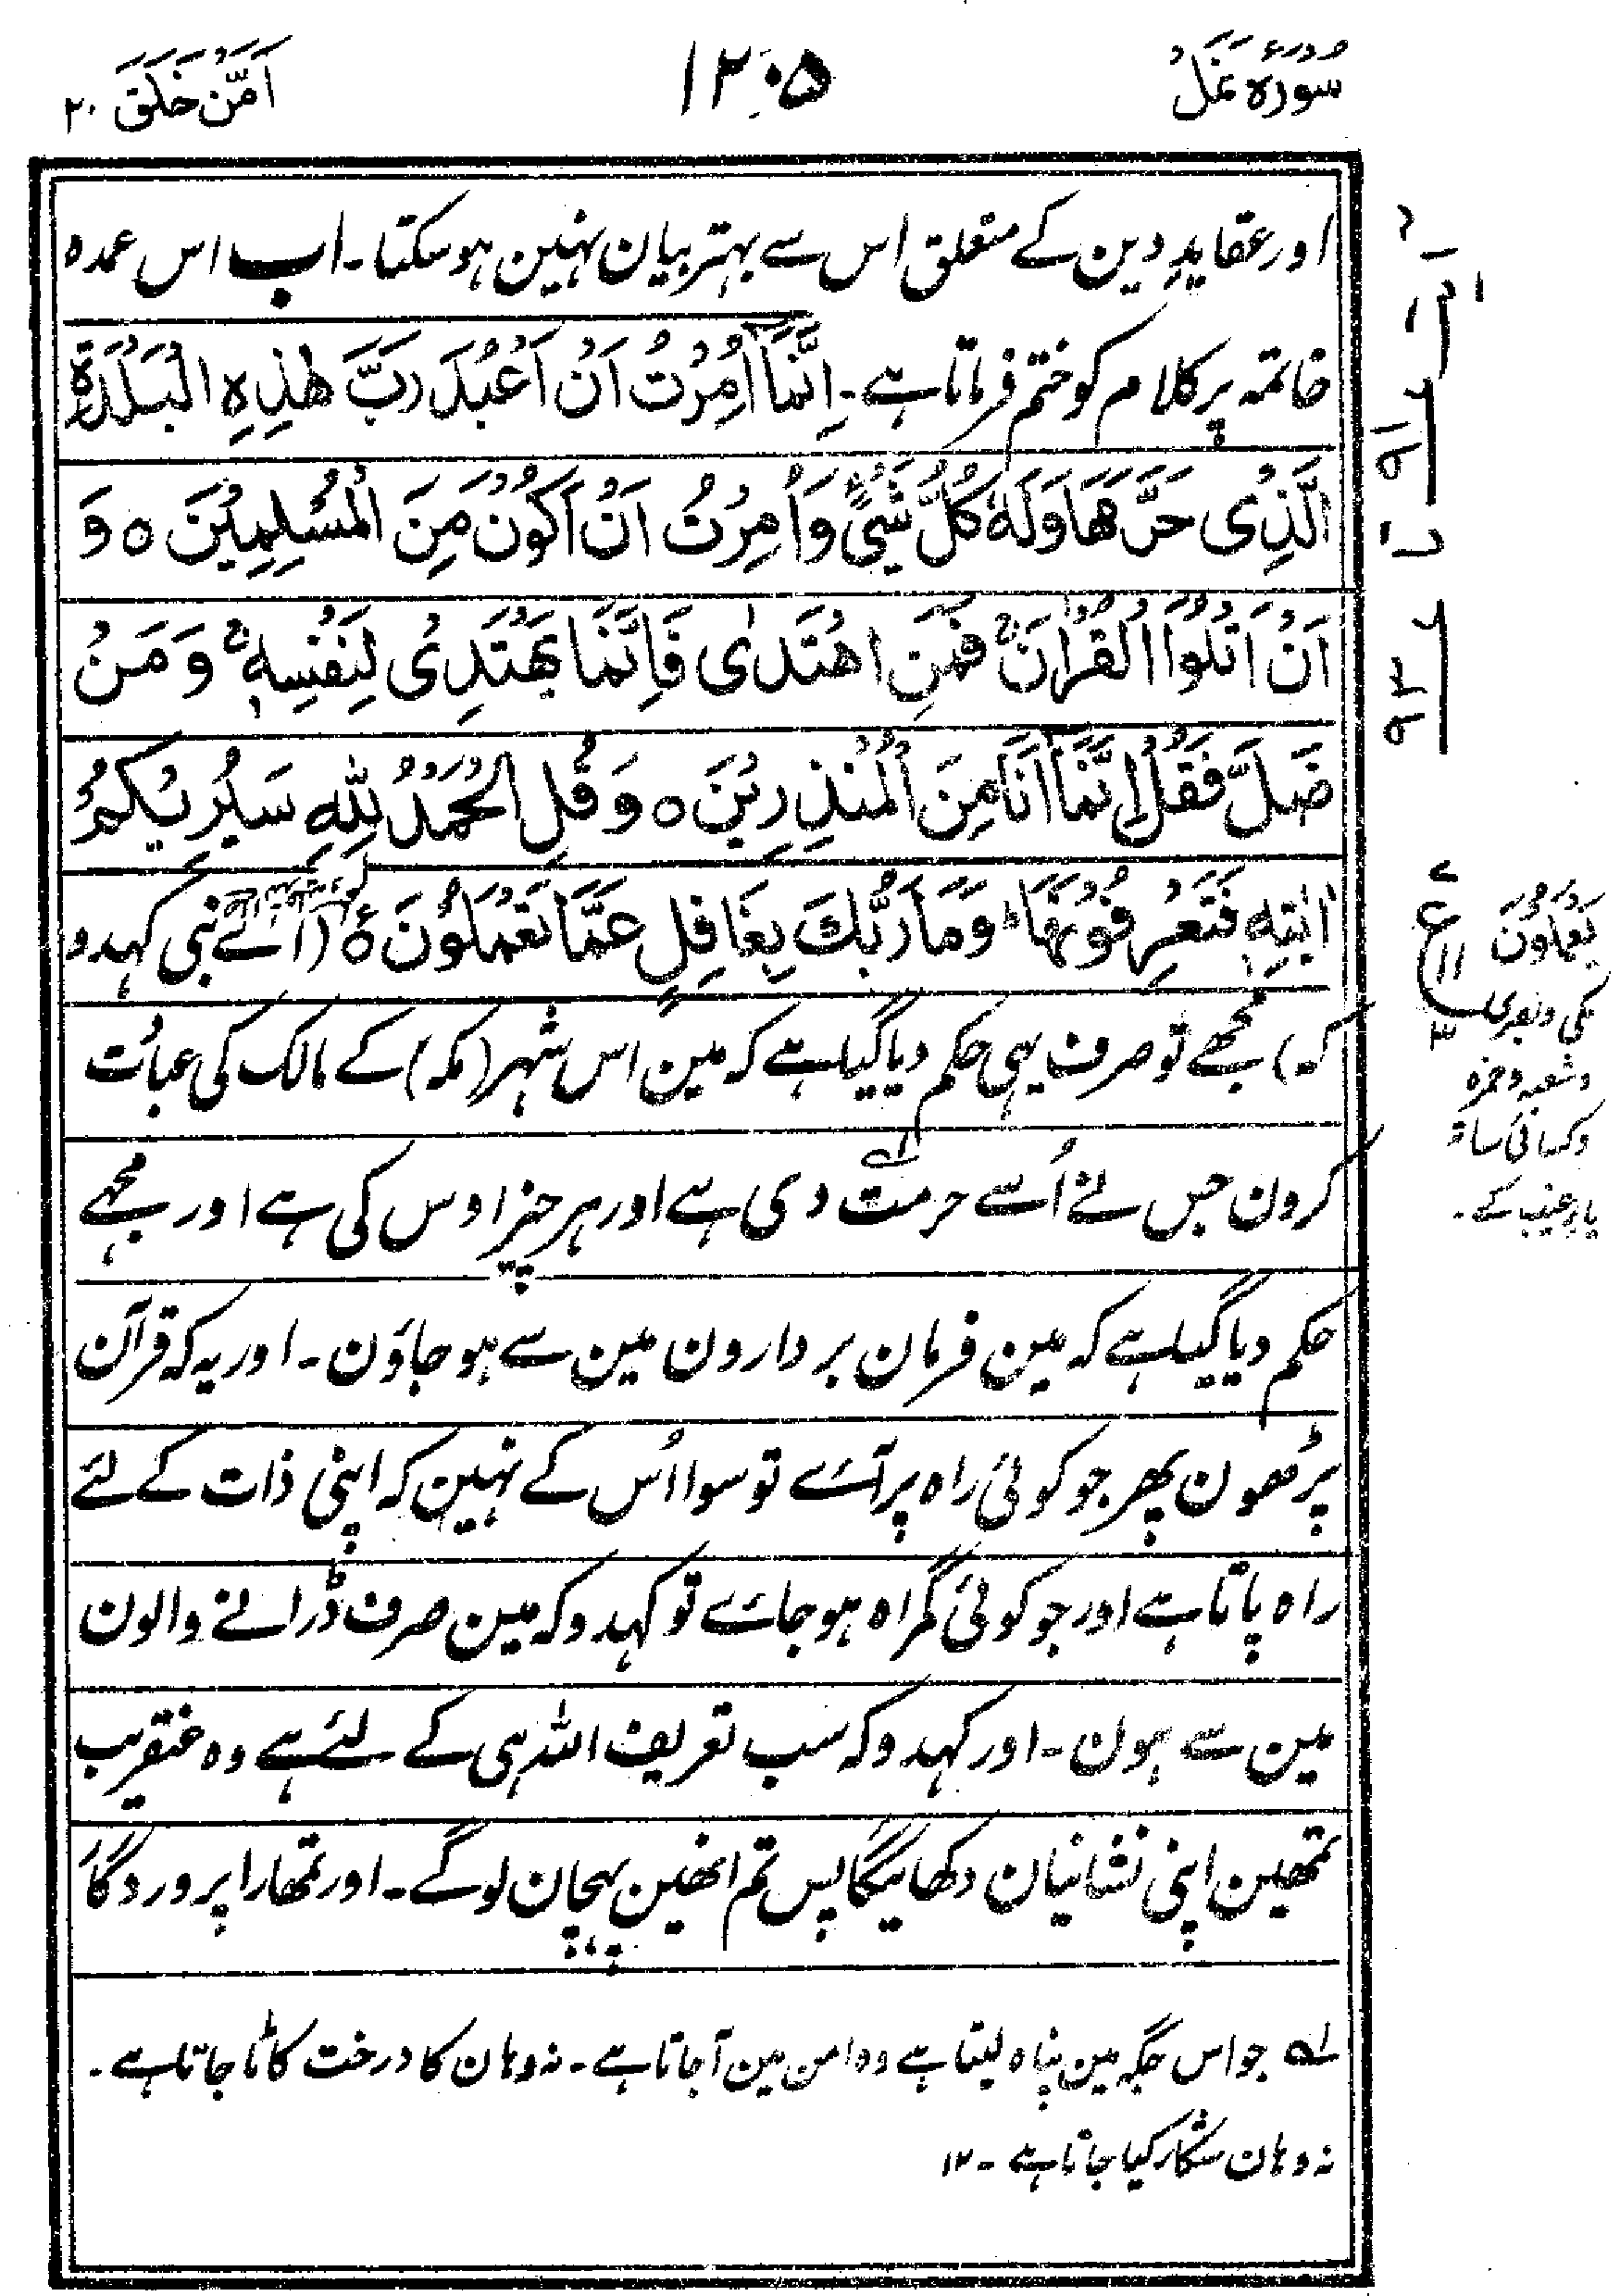 سورۂ نمل
١٢٠٥
اَمَّنْ خَلَقَ ٢٠
اور عقایدِ دین کے متعلق اس سے بہتر بیان نہین ہوسکتا۔ اب اس عمدہ
خاتمہ پر کلام کو ختم فرماتا ہے۔ اِنَّمَآ اُمِرْتُ اَنْ اَعْبُدَ رَبَّ هٰذِهِ الْبَلْدَةِ
الَّذِیْ حَرَّمَهَا وَلَهٗ كُلُّ شَیْءٍ وَّاُمِرْتُ اَنْ اَكُوْنَ مِنَ الْمُسْلِمِیْنَ ○ وَ
اَنْ اَتْلُوَا الْقُرْاٰنَ ۚ فَمَنِ اهْتَدٰى فَاِنَّمَا یَهْتَدِیْ لِنَفْسِهٖ ۚ وَ مَنْ
ضَلَّ فَقُلْ اِنَّمَآ اَنَا مِنَ الْمُنْذِرِیْنَ ○ وَ قُلِ الْحَمْدُ لِلّٰهِ سَیُرِیْكُمْ
اٰیٰتِهٖ فَتَعْرِفُوْنَهَا ؕ وَمَا رَبُّكَ بِغَافِلٍ عَمَّا تَعْمَلُوْنَ ○ (اے نبی کہدو
کہ) مجھے تو صرف یہی حکم دیا گیا ہے کہ مین اس شہر (مکہ) کے مالک کی عبادت
کرون جس نے اُسے حرمت دی ہے اور ہر چیز اوس کی ہے اور مجھے
حکم دیا گیا ہے کہ مین فرمان بردارون مین سے ہوجاؤن۔ اور یہ کہ قرآن
پڑھون پھر جو کوئی راہ پر آئے تو سوا اُس کے نہین کہ اپنی ذات کے لئے
راہ پاتا ہے اور جو کوئی گمراہ ہوجائے تو کہدو کہ مین صرف ڈرانے والون
مین سے ہون۔ اور کہدو کہ سب تعریف اللہ ہی کے لئے ہے وہ عنقریب
تمھین اپنی نشانیان دکھائیگا پس تم انھین پہچان لوگے۔ اور تمھارا پروردگار
لہ جو اس جگہ مین پناہ لیتا ہے وہ امن مین آجاتا ہے۔ نہ وہان کا درخت کاٹا جاتا ہے۔
نہ وہان شکار کیا جاتا ہے۔ ١٢
ع
١١
٣
یَعْمَلُوْنَ
مکی و بصری
و شعبہ و حمزہ
و کسائی ساتھ
یاء غیب کے۔